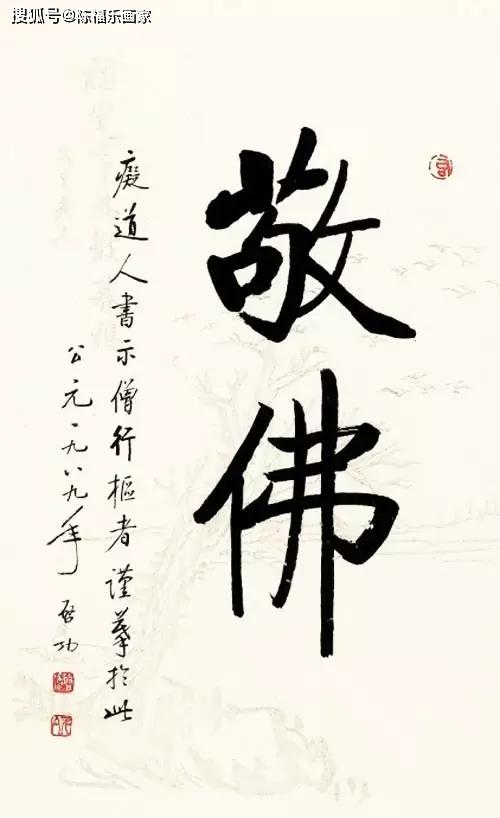 搜狐号@陈福乐画家
敬佛
癡道人書示僧行樞者謹摹於此
公元一九八九年 啓功